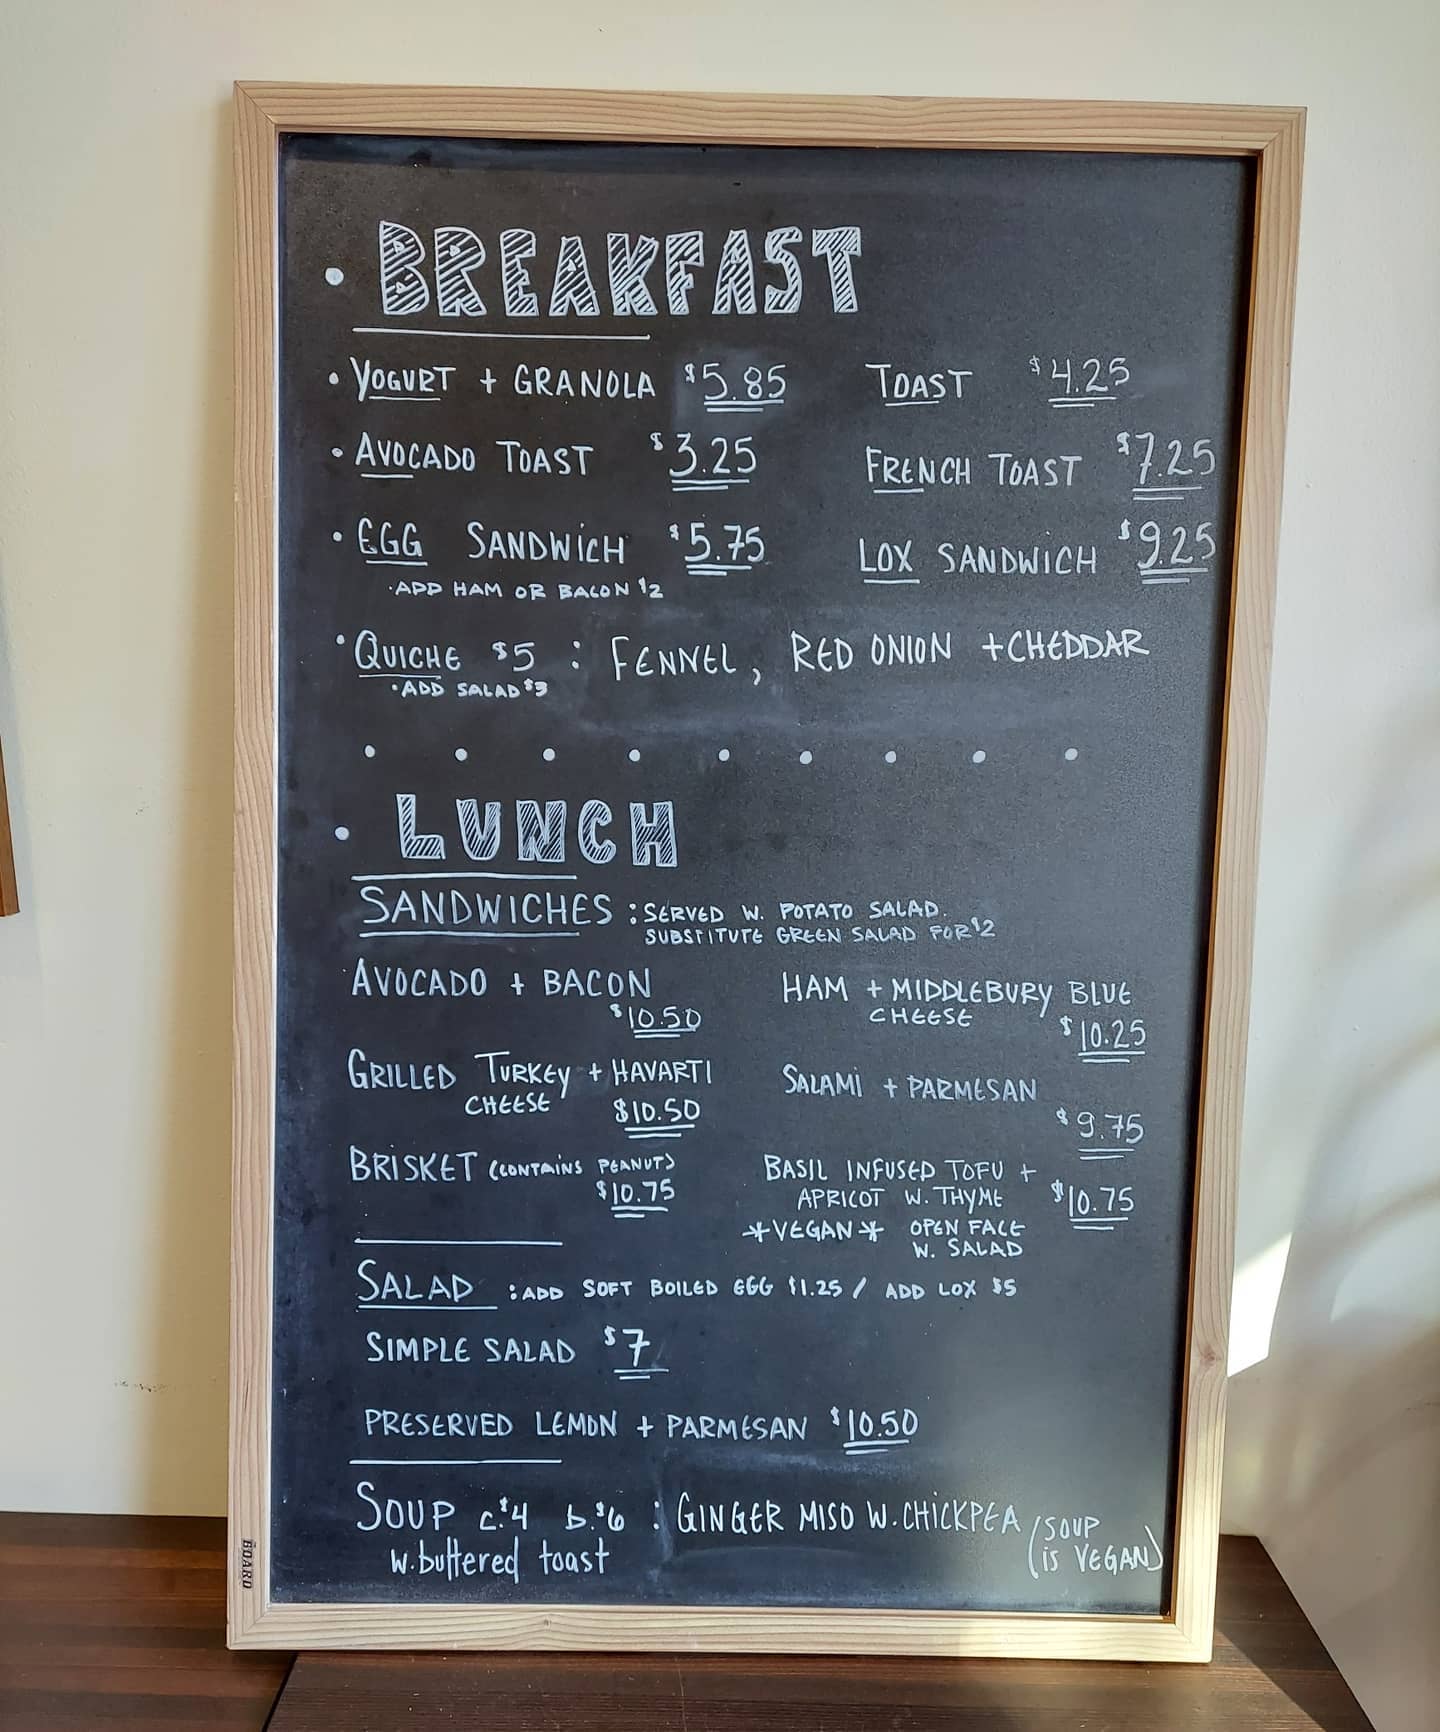 • BREAKFAST
• YOGURT + GRANOLA $5.85 TOAST $4.25
• AVOCADO TOAST $3.25 FRENCH TOAST $7.25
• EGG SANDWICH $5.75 LOX SANDWICH $9.25
• ADD HAM OR BACON $2
• QUICHE $5 : FENNEL, RED ONION + CHEDDAR
• ADD SALAD $3
• LUNCH
SANDWICHES : SERVED W. POTATO SALAD.
SUBSTITUTE GREEN SALAD FOR $2
AVOCADO + BACON
$10.50
HAM + MIDDLEBURY BLUE
CHEESE
$10.25
GRILLED TURKEY + HAVARTI
CHEESE $10.50
SALAMI + PARMESAN
$9.75
BRISKET (CONTAINS PEANUT)
$10.75
BASIL INFUSED TOFU +
APRICOT W. THYME $10.75
*VEGAN* OPEN FACE
W. SALAD
SALAD : ADD SOFT BOILED EGG $1.25 / ADD LOX $5
SIMPLE SALAD $7
PRESERVED LEMON + PARMESAN $10.50
SOUP c.$4 b.$6 : GINGER MISO W. CHICKPEA (SOUP
w. buttered toast IS VEGAN)
BOARD